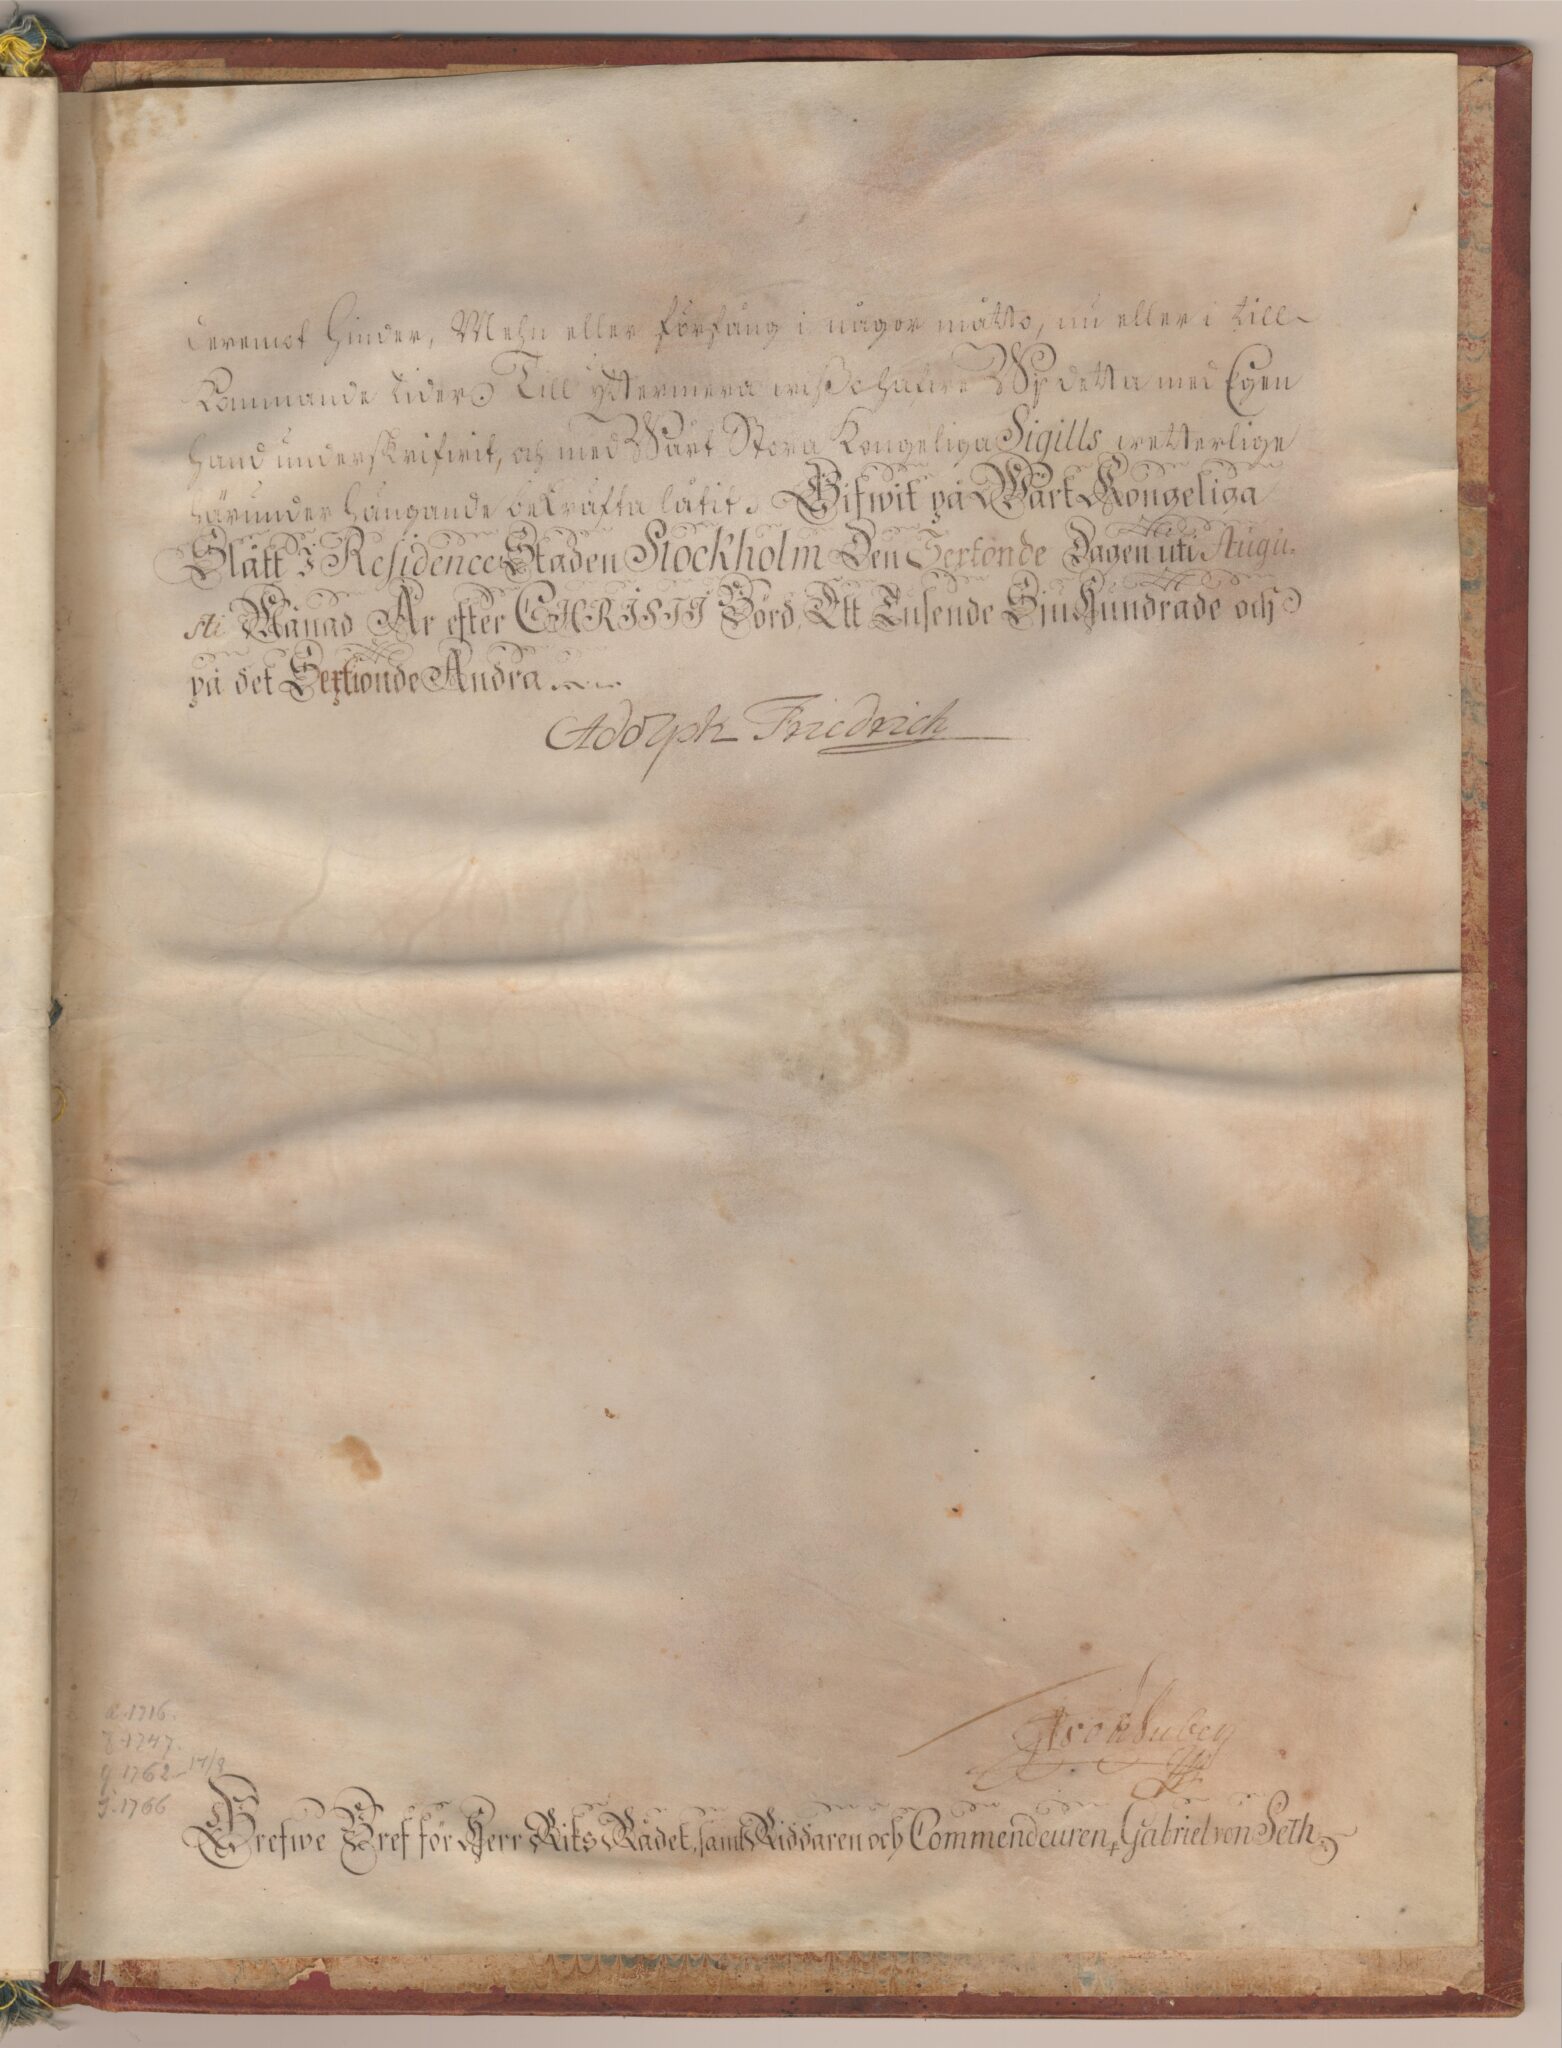 deremot Hinder, Mehn eller förfång i någor måtto, nu eller i till-
kommande tider. Till yttermera wisso hafwe Wij detta med Egen
hand underskrifwit, och med Wårt Stora Kongeliga Sigills wetterlige
härunder hängande bekräfta låtit. Gifwit på Wårt Kongeliga
Slått I Residence Staden Stockholm Den Sextonde Dagen uti Augu-
sti Månad Åhr efter CHRISTI Börd, Ett Tusende Sju Hundrade och
på det Sextionde Andra.
Adolph Friedrich
a. 1716.
g. 1762 14/8
1766
Grefwe Bref för Herr Riks Rådet, samt Riddaren och Commendeuren, Gabriel von Seth.